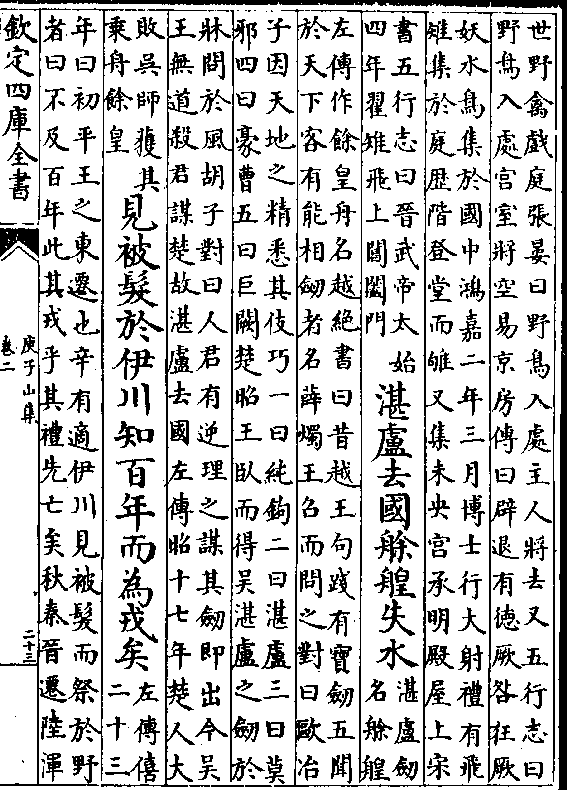 世野禽戲庭張晏曰野鳥入處主人將去又五行志曰
野鳥入處宮室將空易京房傳曰辟退有德厥咎狂厥
妖水鳥集於國中鴻嘉二年三月博士行大射禮有飛
雉集於庭歴階登堂而雊又集未央宫承明殿屋上宋
書五行志曰晉武帝太始
四年翟雉飛上閶闔門
湛盧去國艅艎失水
湛盧劒
名艅艎
左傳作餘皇舟名越絶書曰昔越王句踐有寶劒五聞
於天下客有能相劒者名薛燭王召而問之對曰歐冶
子因天地之精悉其伎巧一曰純鉤二曰湛盧三曰莫
邪四曰豪曹五曰巨闕楚昭王臥而得吳湛盧之劒於
牀問於風胡子對曰人君有逆理之謀其劒即出今吳
王無道殺君謀楚故湛盧去國左傳昭十七年楚人大
敗吳師獲其
乗舟餘皇
見被髮於伊川知百年而為戎矣
左傳僖
二十三
年曰初平王之東遷也辛有適伊川見被髮而祭於野
者曰不及百年此其戎乎其禮先亡矣秋秦晉遷陸渾
欽定四庫全書
庾子山集
卷二
二十三